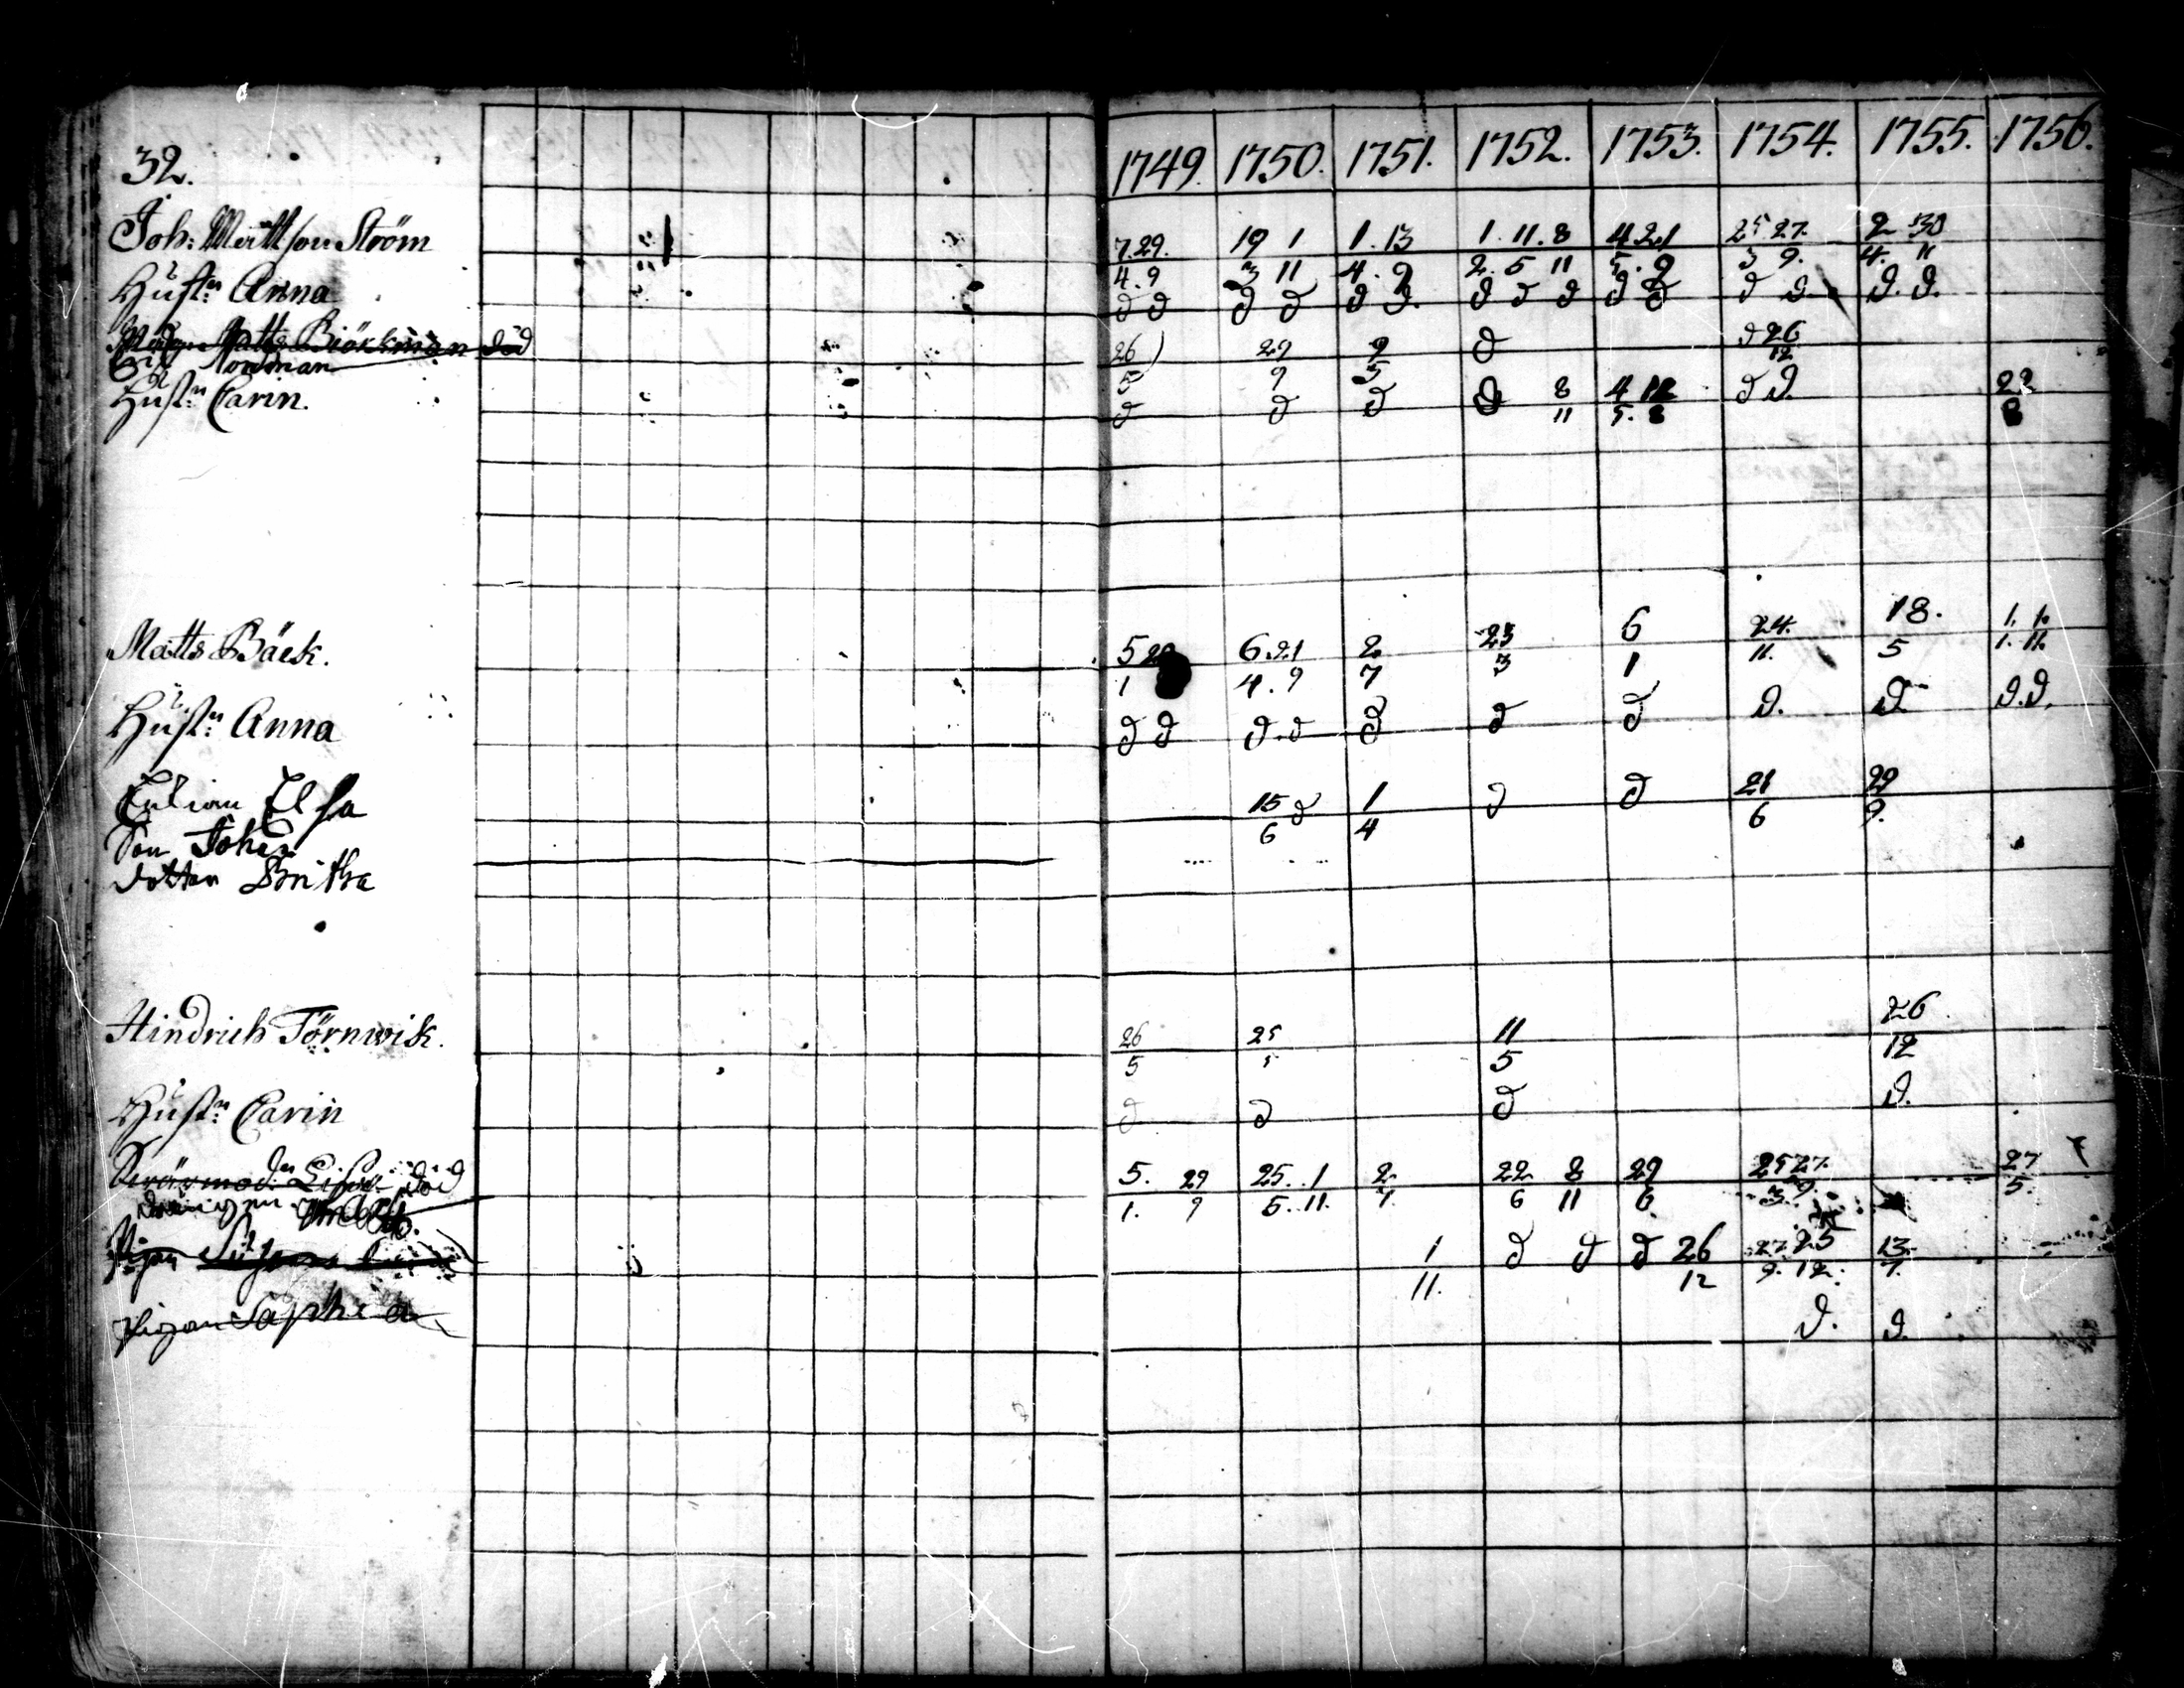 32. 1749. 1750. 1751. 1752. 1753. 1754. 1755. 1756.
Joh: Mattsson Ström 7.29. 19 1 1.13 1.11.8 4 21 25 27. 2 30
4.9 3 11 4.9 2.5 11 5.9 3 9. 4. 11
Hustn: Anna d d d d d d. d d d d d d d. d. d.
Matts Biörkman död 26 29 9 d d 26
Nordman 5 9 3 12
Hustn: Carin. d d d d 8 4 12 d d. 22
11 5. 8 8
Matts Bäck. 5 29 6.21 2 23 6 24. 18. 1. 1.
1 4.9 7 3 1 11. 5 1. 11.
Hustn: Anna d d d.d d d d d. d. d.d.
Elsa 15 d 1 d d 21 29
6 4 6 9.
Son Johan
dotter Britha
Hindrich Törnwik. 26 25 11 26
5 5 5 12
Hustn: Carin d d d d.
Swärmod:n Lisa död 5. 29 25. 1 2 22 8 29 25 27. 27
1. 9 5. 11. 7 6 11 6 3 9 5.
Pigan 1 d d d 26 27. 25 13.
11. 12 9. 12. 7.
Pigan Saphia d. d.